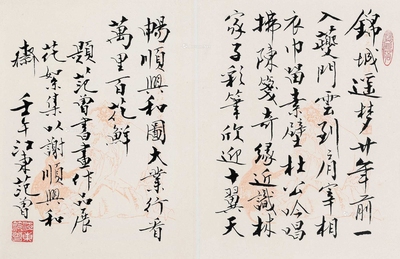 錦城遥梦廿年前一
入夔門雲到肩宰相
衣巾留素壁杜公吟唱
拂陳箋奇緣近識林
家子彩筆欣迎十翼天
暢順興和圖大業行看
萬里百花鮮
題范曾書畫作品展
花絮集以謝順興和
齋 壬午江東范曾